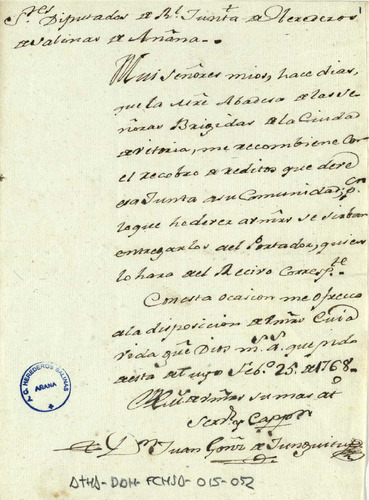 S.res Diputados de R.l Junta de Herederos
de Salinas de Añana.
Mui señores mios, hace dias,
que la M.re Abadesa de las Se-
ñoras Brigidas de la Ciudad
de Vitoria, me recombiene con
el recobro de reditos que debe
esa Junta a su Comunidad; p.r
lo que he de ver a vms. se sirban
entregarlos al Portador, quien
lo hara del Recivo Corresp.te
Con esta ocasion me ofrezco
a la disposicion de vms. Cuia
vida gũe Dios m.s a.s que pido
de esta de Lugo Feb.o 25. de 1768.
de vms su mas at.o
Ser.r y Capp.n
Juan Gonz. de Junguitu
J. G. HEREDEROS SALINAS
AÑANA
ATHA-DAH-FCMSA-015-052